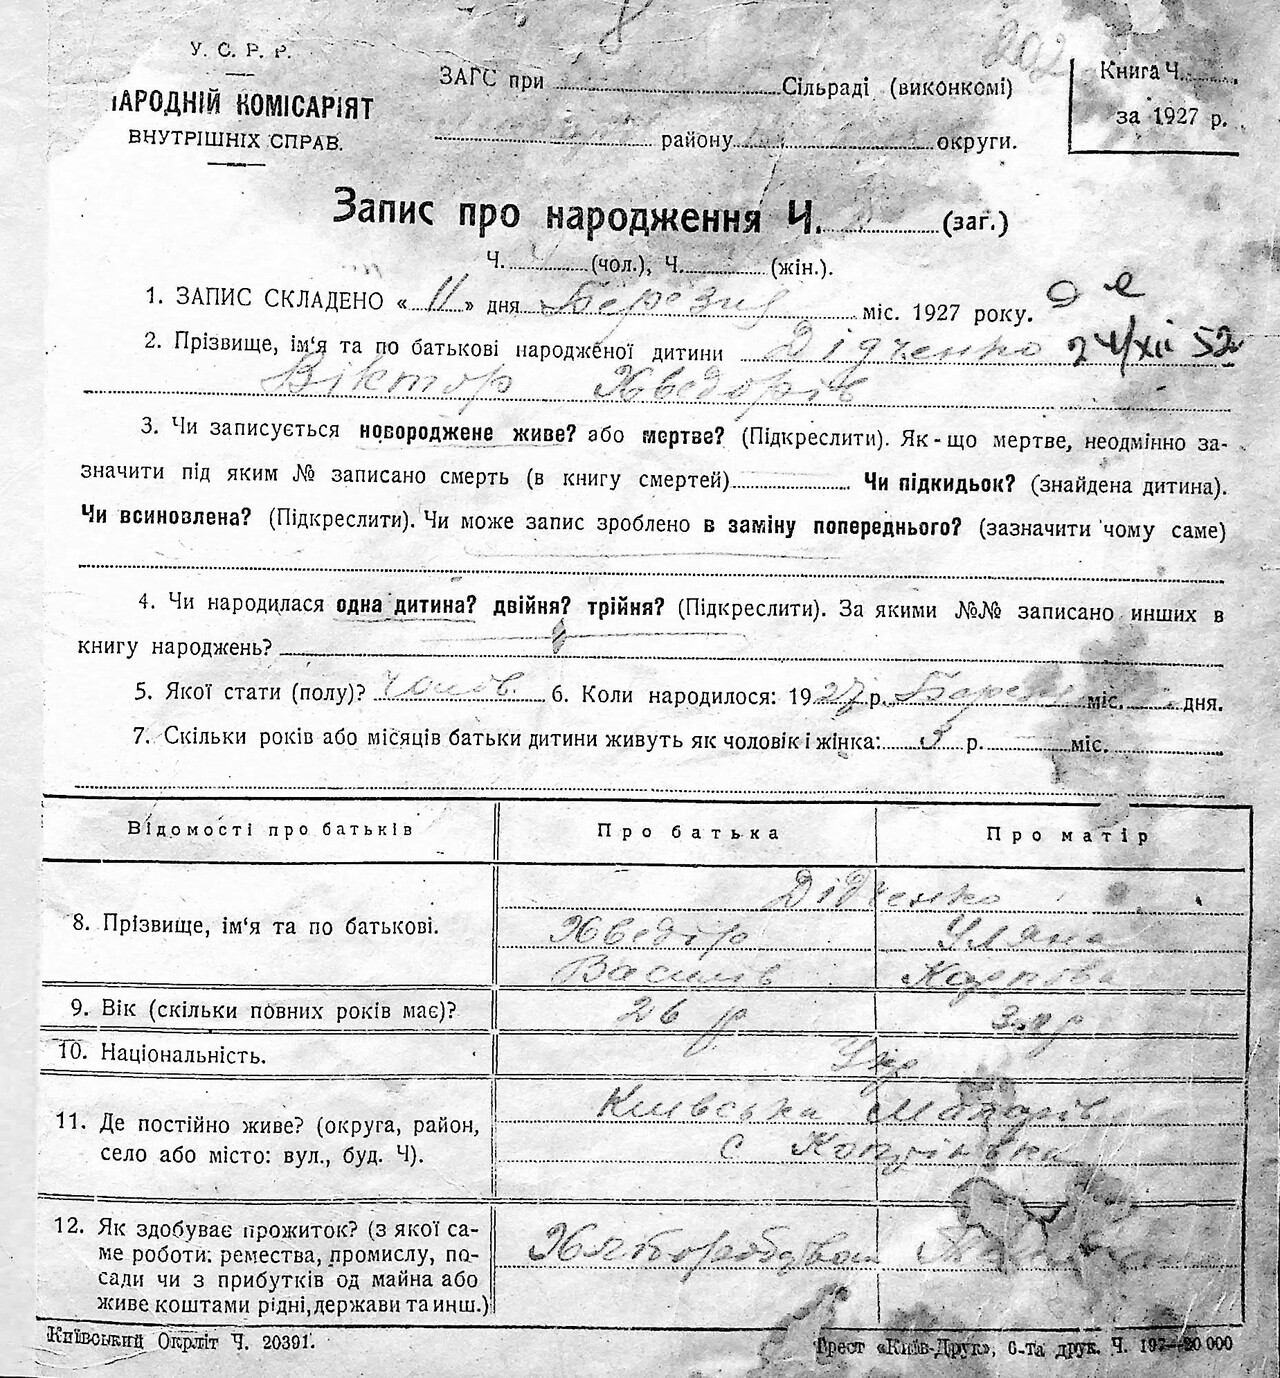 202
У. С. Р. Р.
НАРОДНІЙ КОМІСАРІЯТ
ВНУТРІШНІХ СПРАВ.
ЗАГС при Сільраді (виконкомі)
району округи.
Книга Ч.
за 1927 р.
Запис про народження Ч. (заг.)
Ч. 4 (чол.), Ч. (жін.).
1. ЗАПИС СКЛАДЕНО « 11 » дня Березня міс. 1927 року.
2. Прізвище, ім'я та по батькові народженої дитини Дідченко 24/XII 52
Віктор Хведорів
3. Чи записується новороджене живе? або мертве? (Підкреслити). Як-що мертве, неодмінно за-
значити під яким № записано смерть (в книгу смертей) Чи підкидьок? (знайдена дитина).
Чи всиновлена? (Підкреслити). Чи може запис зроблено в заміну попереднього? (зазначити чому саме)
4. Чи народилася одна дитина? двійня? трійня? (Підкреслити). За якими №№ записано инших в
книгу народжень?
5. Якої стати (полу)? чолов. 6. Коли народилося: 1927 р. Березня міс. дня.
7. Скільки років або місяців батьки дитини живуть як чоловік і жінка: 5 р. міс.
Відомості про батьків Про батька Про матір
Дідченко
8. Прізвище, ім'я та по батькові. Хведір Уляна
Василів Карпова
9. Вік (скільки повних років має)? 26 р
10. Національність. Укр
11. Де постійно живе? (округа, район, Київська Макарів
село або місто: вул., буд. Ч). с Копіївка
12. Як здобуває прожиток? (з якої са-
ме роботи: ремества, промислу, по- Хліборобством
сади чи з прибутків од майна або
живе коштами рідні, держави та инш.)
Київський Окрліт Ч. 20391.
Трест «Київ-Друк», 6-та друк. Ч. 197—20 000